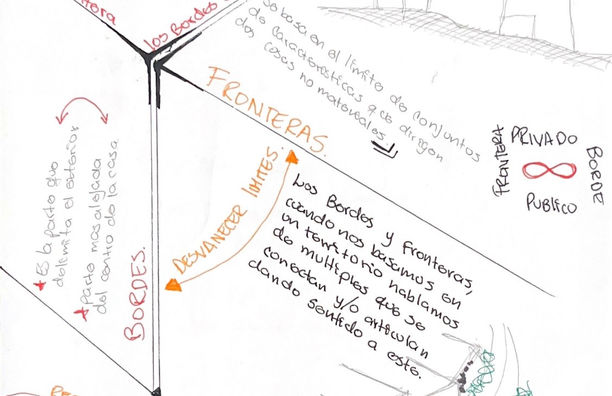 LOS BORDES
se basa en el límite de conjuntos
de características que dirigen
dos cosas no materiales
FRONTERAS.
PRIVADO
PUBLICO
FRONTERA
BORDE
DESVANECER LIMITES.
Los Bordes y fronteras,
cuando nos basamos en
un territorio hablamos
de multiples que se
conectan y/o articulan
dando sentido a este.
BORDES.
Es la parte que
delimita el exterior
Aparte mas alejada
del centro de la cosa